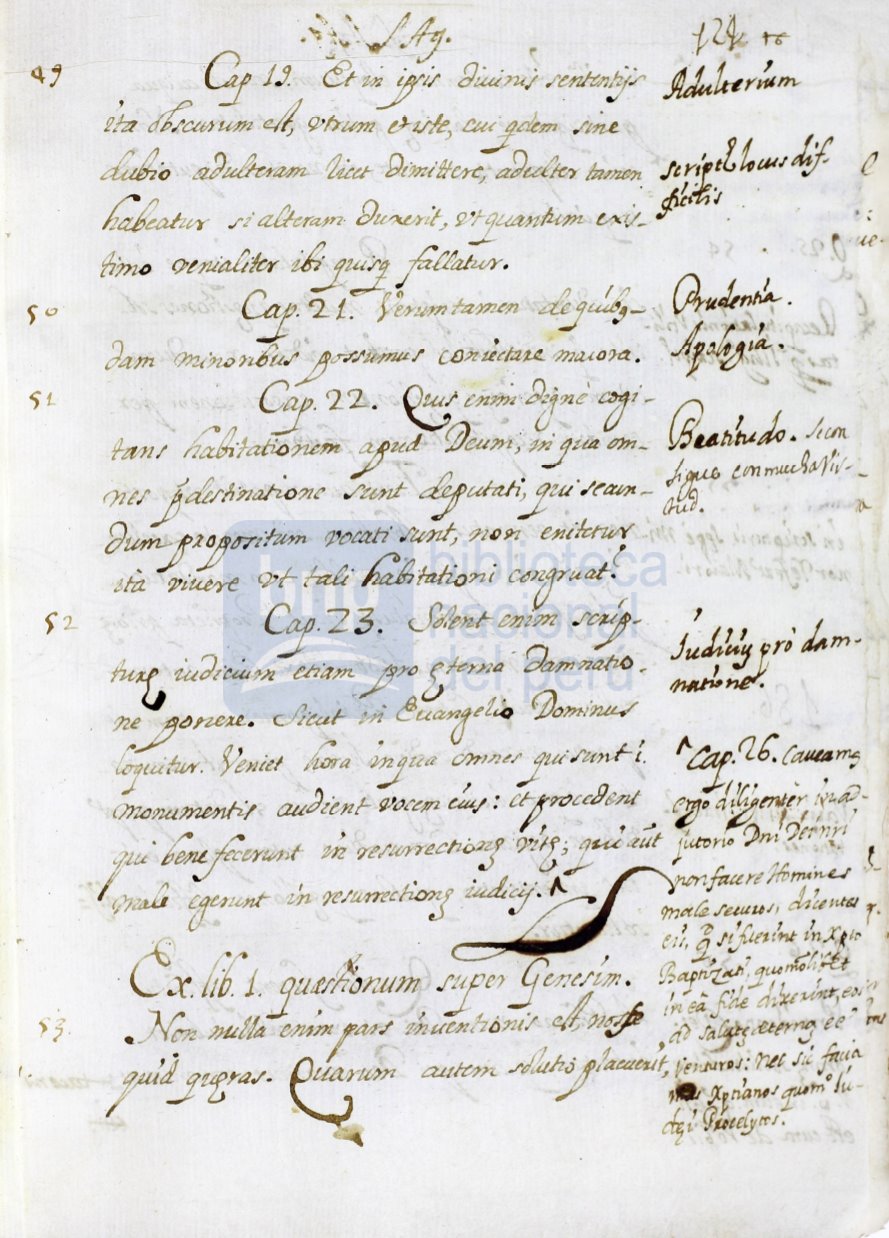 S. Ag.
49 Cap 19. Et in ipsis divinis sententijs
ita obscurum est, vtrum et iste, cui qdem sine
dubio adulteram licet dimittere, adulter tamen
habeatur si alteram duxerit, vt quantum exis-
timo venialiter ibi quisq fallatur.
Adulterium
locus dif-
ficilis
50 Cap. 21. Verumtamen de quibq-
dam minoribus possumus coniectare maiora.
Prudentia.
Apologia.
51 Cap. 22. Quis enim dignè cogi-
tans habitationem apud Deum, in qua om-
nes pdestinatione sunt deputati, qui secun-
dum propositum vocati sunt, non enitetur
ita vivere vt tali habitationi congruat?
Beatitudo. se con
sigue con mucha vir-
tud.
52 Cap. 23. Solent enim scrip-
turę iudicium etiam pro ęterna damnatio-
ne ponere. Sicut in Euangelio Dominus
loquitur. Veniet hora in qua omnes qui sunt i.
monumentis audient vocem eius: et procedent
qui bene fecerunt in resurrectionę vitę; qui aūt
male egerunt in resurrectionę iudicij. ^
Iudiciū pro dam-
natione.
^ Cap. 26. Caveamq
ergo diligenter in ad-
jutorio Dni Dei nri
non facere Homines
male securos, dicentes
ei, si fuerint in Xpto
Baptizati,
in eā fide dixerint, eos
ad salutę æternę
venturos: nec sic facia
mus Xptianos quom° Iu-
dęi Proselytos.
Ex. lib. 1. quæstionum super Genesim.
53 Non nulla enim pars inventionis est, nosse
quid quęras. Quarum autem solutio placuerit,
biblioteca
nacional
del perú